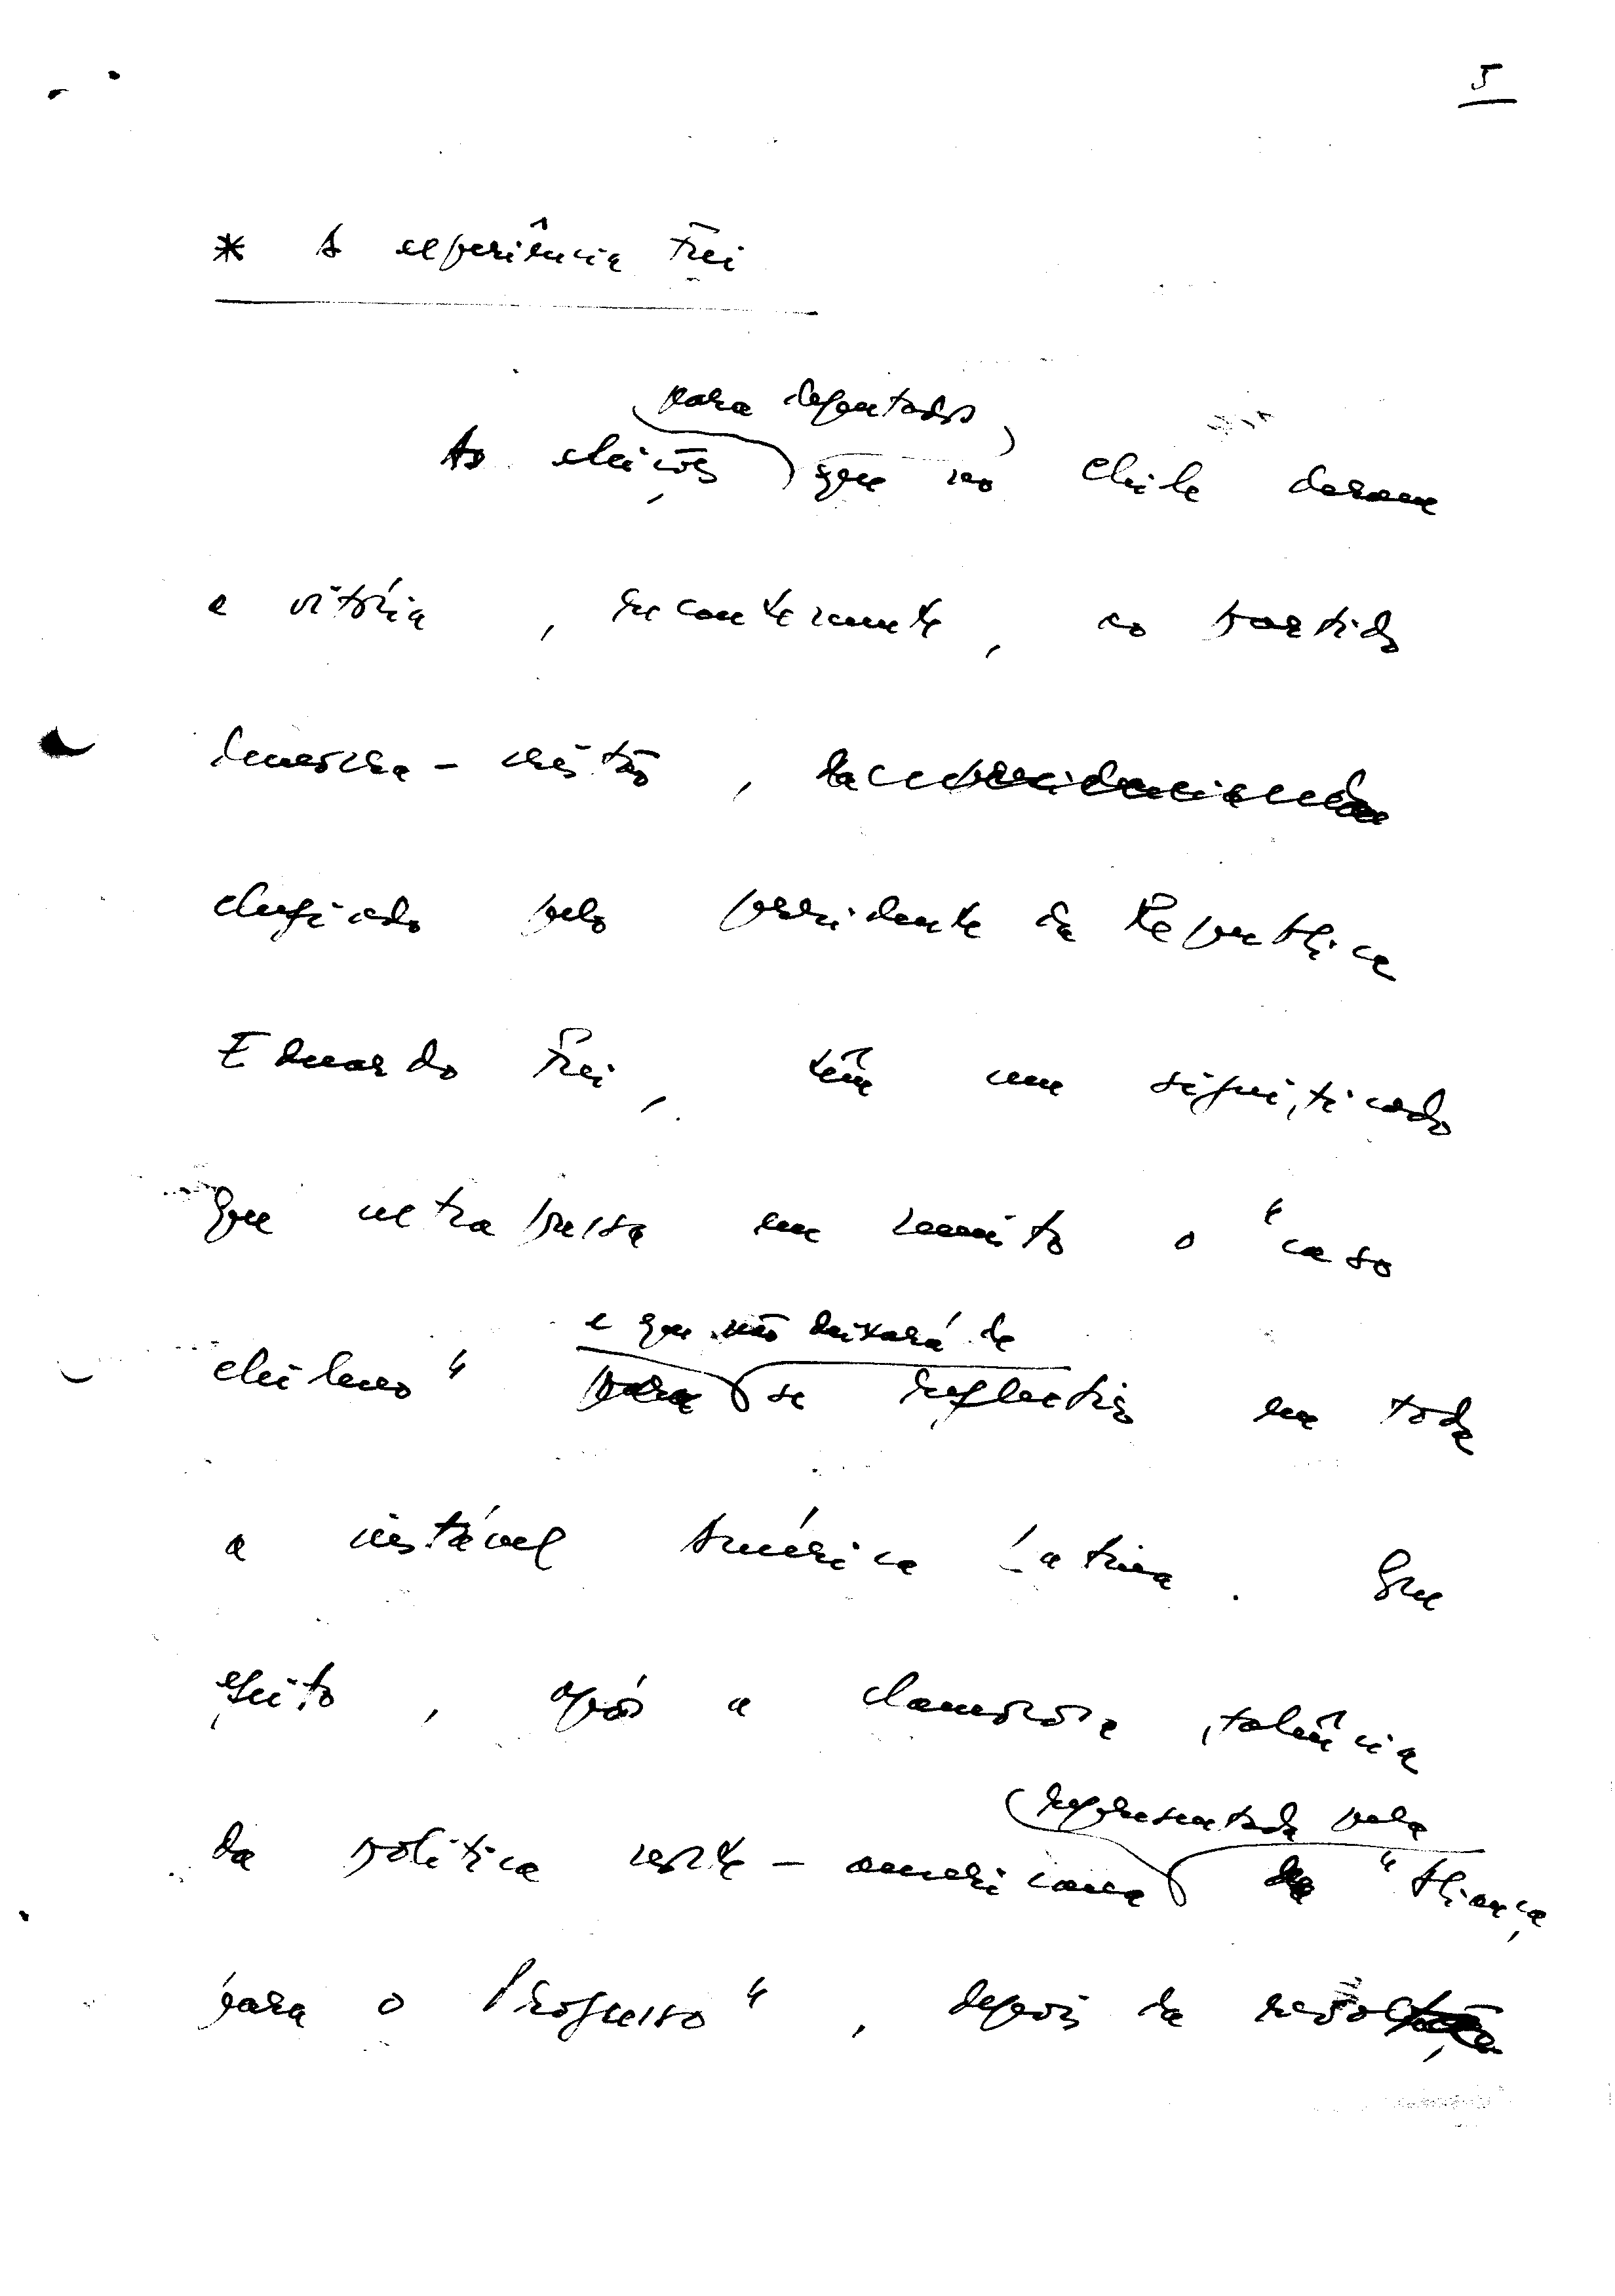 5
* A experiência Frei
para deputados
As eleições que no Chile deram
a vitória, recentemente, ao partido
democrata-cristão,
chefiado pelo presidente da República
Eduardo Frei, têm um significado
que ultrapassa em muito o "caso
chileno"
e que não deixará de
para se reflectir em toda
a instável América Latina. Com
efeito, após a clamorosa falência
representada pela
da política norte-americana da "Aliança
para o Progresso", depois da